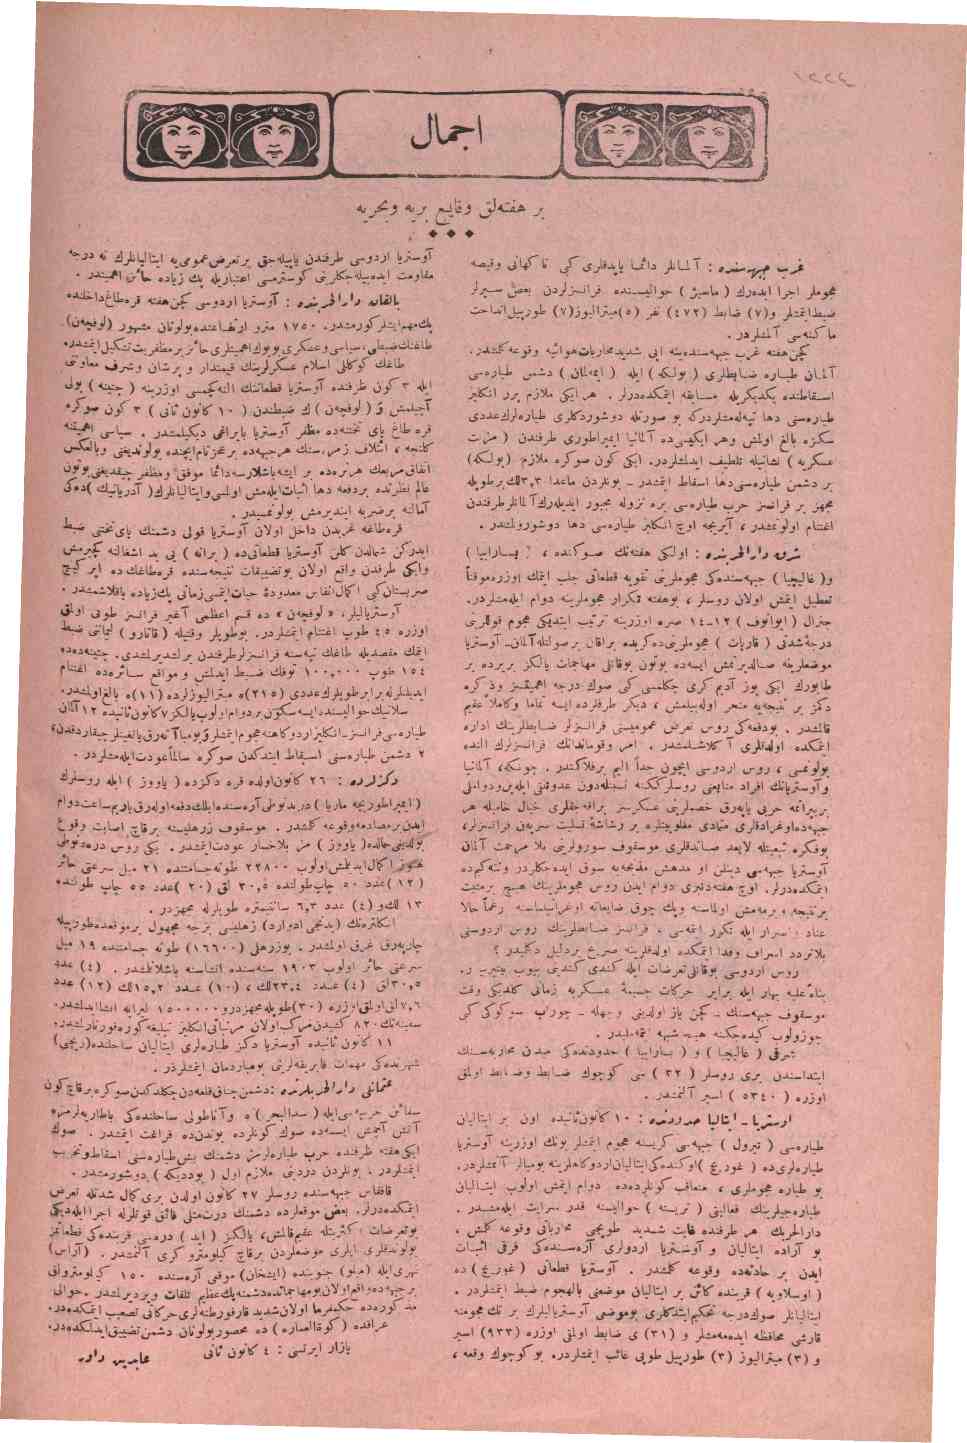 ١٣٣٤
اجمال
بر هفته‌لق وقایع بریه وبحریه
غرب جبهه‌سنده : آلمانلر دائما یاپدقلری کبی ناکهانی وقیصه
هجوملر اجرا ایده‌رك ( ماسیژ ) حوالیسنده فرانسزلردن بعض سپرلر
ضبط ایتمشلر و(٧) ضابط (٤٧٢) نفر (٥) میترالیوز (٧) طورپیل انداخت
ماکنه‌سی آلمشلردر.
کچن هفته غرب جبهه‌سنده ینه ایی شدید محاربات هوائیه وقوعه کلمشدر.
آلمان طیاره ضابطلری ( بولکه ) ایله ( ایمه‌لمان ) دشمن طیاره‌سی
اسقاطنده یکدیکریله مسابقه ایتمکده‌درلر. هر ایکی ملازم برر انکلیز
طیاره‌سی دها تپه‌له‌مشلردرکه بو صورتله دوشوردکلری طیاره‌لرك عددی
سکزه بالغ اولمش وهر ایکیسی‌ده آلمانیا ایمپراطوری طرفندن ( مزیت
عسکریه ) نشانیله تلطیف ایدلمشلردر. ایکی کون صوکره ملازم (بولکه)
بر دشمن طیاره‌سی دها اسقاط ایتمشدر ـ بونلردن ماعدا ٣,٣لك بر طوپله
مجهز بر فرانسز حرب طیاره‌سی بره نزوله مجبور ایدیله‌رك آلمانلر طرفندن
اغتنام اولونمشدر ، آیریجه اوچ انکلیز طیاره‌سی دها دوشورولمشدر .
شرق دارالحربنده : اولکی هفته‌نك صوکنده ، ( بسارابیا )
و( غالیچیا ) جبهه‌سنده‌کی هجوملرینی تقویه قطعاتی جلب ایتمك اوزره موقتاً
تعطیل ایتمش اولان روسلر ، بوهفته تکرار هجوملرینه دوام ایله‌مشلردر.
جنرال ( ایوانوف ) ١٢-١٤ صره اوزرینه ترتیب ایتدیکی هجوم قوللرینی
درجۀ شدتی ( قارپات ) هجوملرینی‌ده کریده براقان بر صولتله آلمان ـ آوستریا
موضعلرینه صالدیرتمش ایسه‌ده بوتون بوقانلی مهاجمات یالکز بریرده بر
طابورك ایکی یوز آدیم کری چکلمسی کبی صوك درجه اهمیتسز وذکره
دکمز بر نتیجه‌یه منجر اوله‌بیلمش ، دیکر طرفلرده ایسه تماما وکاملاً عقیم
قالمشدر . بودفعه‌کی روس تعرض عمومیسنی فرانسز ضابطلرینك اداره
ایتمکده اولدقلری آکلاشلمشدر . امر وقوماندانك فرانسزلرك النده
بولونمسی ، روس اردوسی ایچون جداً الیم برفلاکتدر . چونکه، آلمانیا
جبهه‌ده اوغرادقلری متمادی مغلوبیتلره بر رشاشۀ تسلیت سرپه‌ن فرانسزلر،
بوفکره تبعیتله لایعد صاندقلری موسقوف سورولرینی بلا مرحمت آلمان
آوستریا جبهه‌سی دینلن او مدهش مذبحه‌یه سوق ایده‌جکلردر ونته‌کیم‌ده
ایتمکده‌درلر. اوچ هفته‌دنبری دوام ایدن روس هجوملرینك هیچ بر مثبت
بر نتیجه ویرمه‌مش اولماسنه وپك چوق ضایعاته اوغرانیلماسنه رغماً حالا
عناد واصرار ایله تکرر ایتمه‌سی ، فرانسز ضابطلرینك روس اردوسنی
بلاتردد اسراف وفدا ایتمکده اولدقلرینه صریح بردلیل دکلمیدر ؟
روس اردوسی بوقانلی تعرضات ایله کندی کندینی ییوب بیتیرییور.
بناءً علیه بهار ایله برابر حرکات جسیمۀ عسکریه زمانی کلدیکی وقت
موسقوف جبهه‌سنك ـ کچن یاز اولدیغی وجهله ـ چوراب سوکوکی کبی
چوزولوب کیده‌جکنه هیچ شبهه ایتمه‌ملیدر.
شرقی ( غالیچیا ) و ( بسارابیا ) حدودنده‌کی میدان محاربه‌سنك
ابتداسندن بری روسلر ( ٣٢ ) سی کوچوك ضابط وضابط اولمق
اوزره ( ٥٣٤٠ ) اسیر آلنمشدر .
اوستریا ـ ایتالیا حدودنده : ١٠ کانون ثانیده اون بر ایتالیان
طیاره‌سی ( تیرول ) جبهه‌سی کریسنه هجوم ایتمشلر بونك اوزرینه آوستریا
طیاره‌لری‌ده ( غوریچ ) اوکنده‌کی ایتالیان اردوکاهلرینه بومبالر آتمشلردر.
بو طیاره هجوملری ، متعاقب کونلرده‌ده دوام ایتمش اولوب ایتالیان
طیاره‌جیلرینك فعالیتی ( تریسته ) حوالیسنه قدر سرایت ایله‌مشدر .
دارالحربك هر طرفنده غایت شدید طوپجی محارباتی وقوعه کلمش .
بو آراده ایتالیان و آوستریا اردولری آره‌سنده‌کی فرقی اثبات
ایدن بر حادثه‌ده وقوعه کلمشدر . آوستریا قطعاتی ( غوریچ ) ده
( اوسلاویه ) قربنده کائن بر ایتالیان موضعنی بالهجوم ضبط ایتمشلردر .
ایتالیانلر صوك درجه تحکیم ایتدکلری بوموضعی آوستریالیلرك بر تك هجومنه
قارشی محافظه ایده‌مه‌مشلر و (٣١) ی ضابط اولمق اوزره (٩٣٣) اسیر
و (٣) میترالیوز (٣) طورپیل طوپی غائب ایتمشلردر. بو کوچوك وقعه ،
آوستریا اردوسی طرفندن یاپیله‌جق بر تعرض عمومی‌یه ایتالیانلرك نه درجه
مقاومت ایده‌بیله‌جکلرینی کوسترمسی اعتباریله پك زیاده حائز اهمیتدر .
بالقان دارالحربنده : آوستریا اردوسی کچن هفته قره‌طاغ داخلنده
پك مهم ایشلر کورمشدر. ١٧٥٠ مترو ارتفاعنده بولونان مشهور (لوفچن)
طاغنك ضبطی ، سیاسی وعسکری بویوك اهمیتلری حائز بر مظفریت تشکیل ایتمشدر.
طاغك کوکلی اسلام عسکرلرینك قیمتدار و پرشان وشرف معاونتی
ایله ٣ کون ظرفنده آوستریا قطعاتنك النه کچمسی اوزرینه ( چتینه ) یولی
آچیلمش و ( لوفچه‌ن ) ك ضبطندن ( ١٠ کانون ثانی ) ٣ کون صوکره
قره طاغ پای تختنده مظفر آوستریا بایراغی دیکیلمشدر . سیاسی اهمیتنه
کلنجه ، ائتلاف زمره‌سنك هر جهتده بر عجز تام ایچنده بولوندیغنی وبالعکس
اتفاق مربعك هر نره‌ده بر ایشه باشلارسه دائما موفق ومظفر چیقدیغنی بوتون
عالم نظرنده بردفعه دها اثبات ایله‌مش اولمسی وایتالیانلرك ( آدریاتیك ) ده‌کی
آمالنه بر ضربه ایندیرمش بولونمسیدر .
قره‌طاغه غربدن داخل اولان آوستریا قولی دشمنك پای تختنی ضبط
ایدرکن شمالدن کلن آوستریا قطعاتی‌ده ( برانه ) یی ید اشغالنه کچیرمش
وایکی طرفدن واقع اولان بوتضییقات نتیجه‌سنده قره‌طاغك ده ایر کیچ
صربستان کبی اکمال انفاس معدودۀ حیات ایتمسی زمانی پك زیاده یاقلاشمشدر .
آوستریالیلر، « لوفچه‌ن » ده قسم اعظمی آغیر فرانسز طوپی اولمق
اوزره ٤٥ طوپ اغتنام ایتمشلردر. بوطوپلر وقتیله ( قاتارو ) لیمانی ضبط
ایتمك مقصدیله طاغك تپه‌سنه فرانسزلر طرفندن یرلشدیرلمشدی. چتینه‌ده‌ده
١٥٤ طوپ ١٠,٠٠٠ توفك ضبط ایدلمش و مواقع سائره‌ده اغتنام
ایدیلنلرله برابر طوپلرك عددی (٢١٥) ه میترالیوزلرده (١١) ه بالغ اولمشدر.
سلانیك حوالیسنده ایسه سکون بردوام اولوب یالکز ٧ کانون ثانیده ١٢ آلمان
طیاره‌سی فرانسز ـ انکلیز اردوکاهنه هجوم ایتمشلر و بومبا آته‌رق یانغینلر چیقاردقدن ،
٢ دشمن طیاره‌سنی اسقاط ایتدکدن صوکره سالماً عودت ایله‌مشلردر .
دکزلرده : ٢٦ کانون اولده قره دکزده ( یاوز ) ایله روسلرك
( ایمپراطوریچه ماریا ) دریدنوطی آره‌سنده ایلك دفعه اوله‌رق یاریم ساعت دوام
ایدن بر مصادمه وقوعه کلمشدر. موسقوف زرهلیسنه برقاچ اصابت وقوع
بولدیغی حالده ( یاوز ) من بلاخسار عودت ایتمشدر. یکی روس دره‌دنوطی
هنوز اکمال ایدلمش اولوب ٢٢٨٠٠ طونه جسامتنده ٢١ میل سرعتی حائز
(١٢) عدد ٥٠ چاپ طولنده ٣٠,٥ لق (٢٠) عدد ٥٥ چاپ طولنده
١٣ لك و (٤) عدد ٦,٣ سانتیمتره طوپلرله مجهزدر .
انکلتره‌نك ( یدنجی ادوارد ) زرهلیسی نزجه مجهول بر موقعده طورپیله
چارپه‌رق غرق اولمشدر. بوزرهلی (١٦٦٠٠) طونه جسامتنده ١٩ میل
سرعتی حائز اولوب ١٩٠٣ سنه‌سنده انشاسنه باشلانمشدر . (٤) عدد
٣٠,٥ لق (٤) عدد ٢٣,٤ لك ، (١٠) عدد ١٥,٢ لك (١٢) عدد
٧,٦ لق اولمق اوزره (٣٠) طوپله مجهزدر و ١٥٠٠٠٠٠ لیرایه انشا ایدلمشدر.
سفینه‌نك ٨٢٠ کشیدن مرکب اولان مرتباتی انکلیز تبلیغنه کوره قورتارلمشدر .
١١ کانون ثانیده آوستریا دکز طیاره‌لری ایتالیان ساحلنده ( ریمینی )
شهرنده‌کی مهمات فابریقه‌لرینی بومباردمان ایتمشلردر .
عثمانلی دارالحربلرنده : دشمن چناق قلعه‌دن چکلدکدن صوکره برقاچ کون
سفائن حربیه‌سی ایله ( سدالبحر ) ه و آناطولی ساحلنده‌کی باطاریه‌لرمزه
آتش آچمش ایسه‌ده صوك کونلرده بوندن‌ده فراغت ایتمشدر . صوك
ایکی هفته ظرفنده حرب طیاره‌لرمز دشمنك بش طیاره‌سنی اسقاط وتخریب
ایتمشلردر . بونلردن دردینی ملازم اول ( بوددیکه ) دوشورمشدر .
قافقاس جبهه‌سنده روسلر ٢٧ کانون اولدن بری کمال شدتله تعرض
ایتمکده‌درلر. بعض موقعلرده دشمنك درت مثلی فائق قوتلرله اجرا ایله‌دیکی
بوتعرضات ، کثرتله عقیم قالمش ، یالکز ( اید ) دره‌سی قربنده‌کی قطعاتمز
بولوندقلری ایلری موضعلردن برقاچ کیلومترو کری آلنمشدر . (آراس)
نهری ایله ( میلو ) جنوبنده ( ایشخان ) موقعی آره‌سنده ١٥٠ کیلومترولق
بر جبهه‌ده واقع اولان بومهاجماتده دشمنه پك عظیم تلفات ویردیرلمشدر. حوالی
مذکوره‌ده حکمفرما اولان شدید قار فورطنه‌لری حرکاتی تصعیب ایتمکده‌در.
عراقده ( کوت‌العماره ) ده محصور بولونان دشمن تضییق ایدلمکده‌در.
بازار ایرتسی : ٤ کانون ثانی
عابدین داور